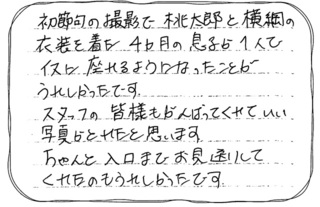 初節句の撮影で桃太郎と横綱の
衣装を着た4ヵ月の息子が1人で
イスに座れるようになったことが
うれしかったです。
スタッフの皆様もがんばってくれていい
写真がとれたと思います。
ちゃんと入口までお見送りして
くれたのもうれしかったです。